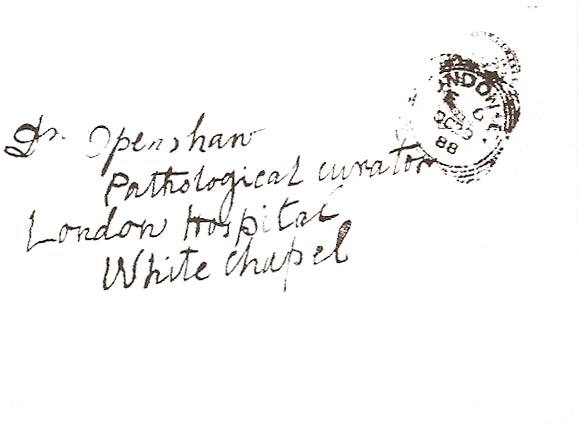 Dr. Openshaw
Pathological curator
London Hospital
White chapel
LONDON E.
OC29
88